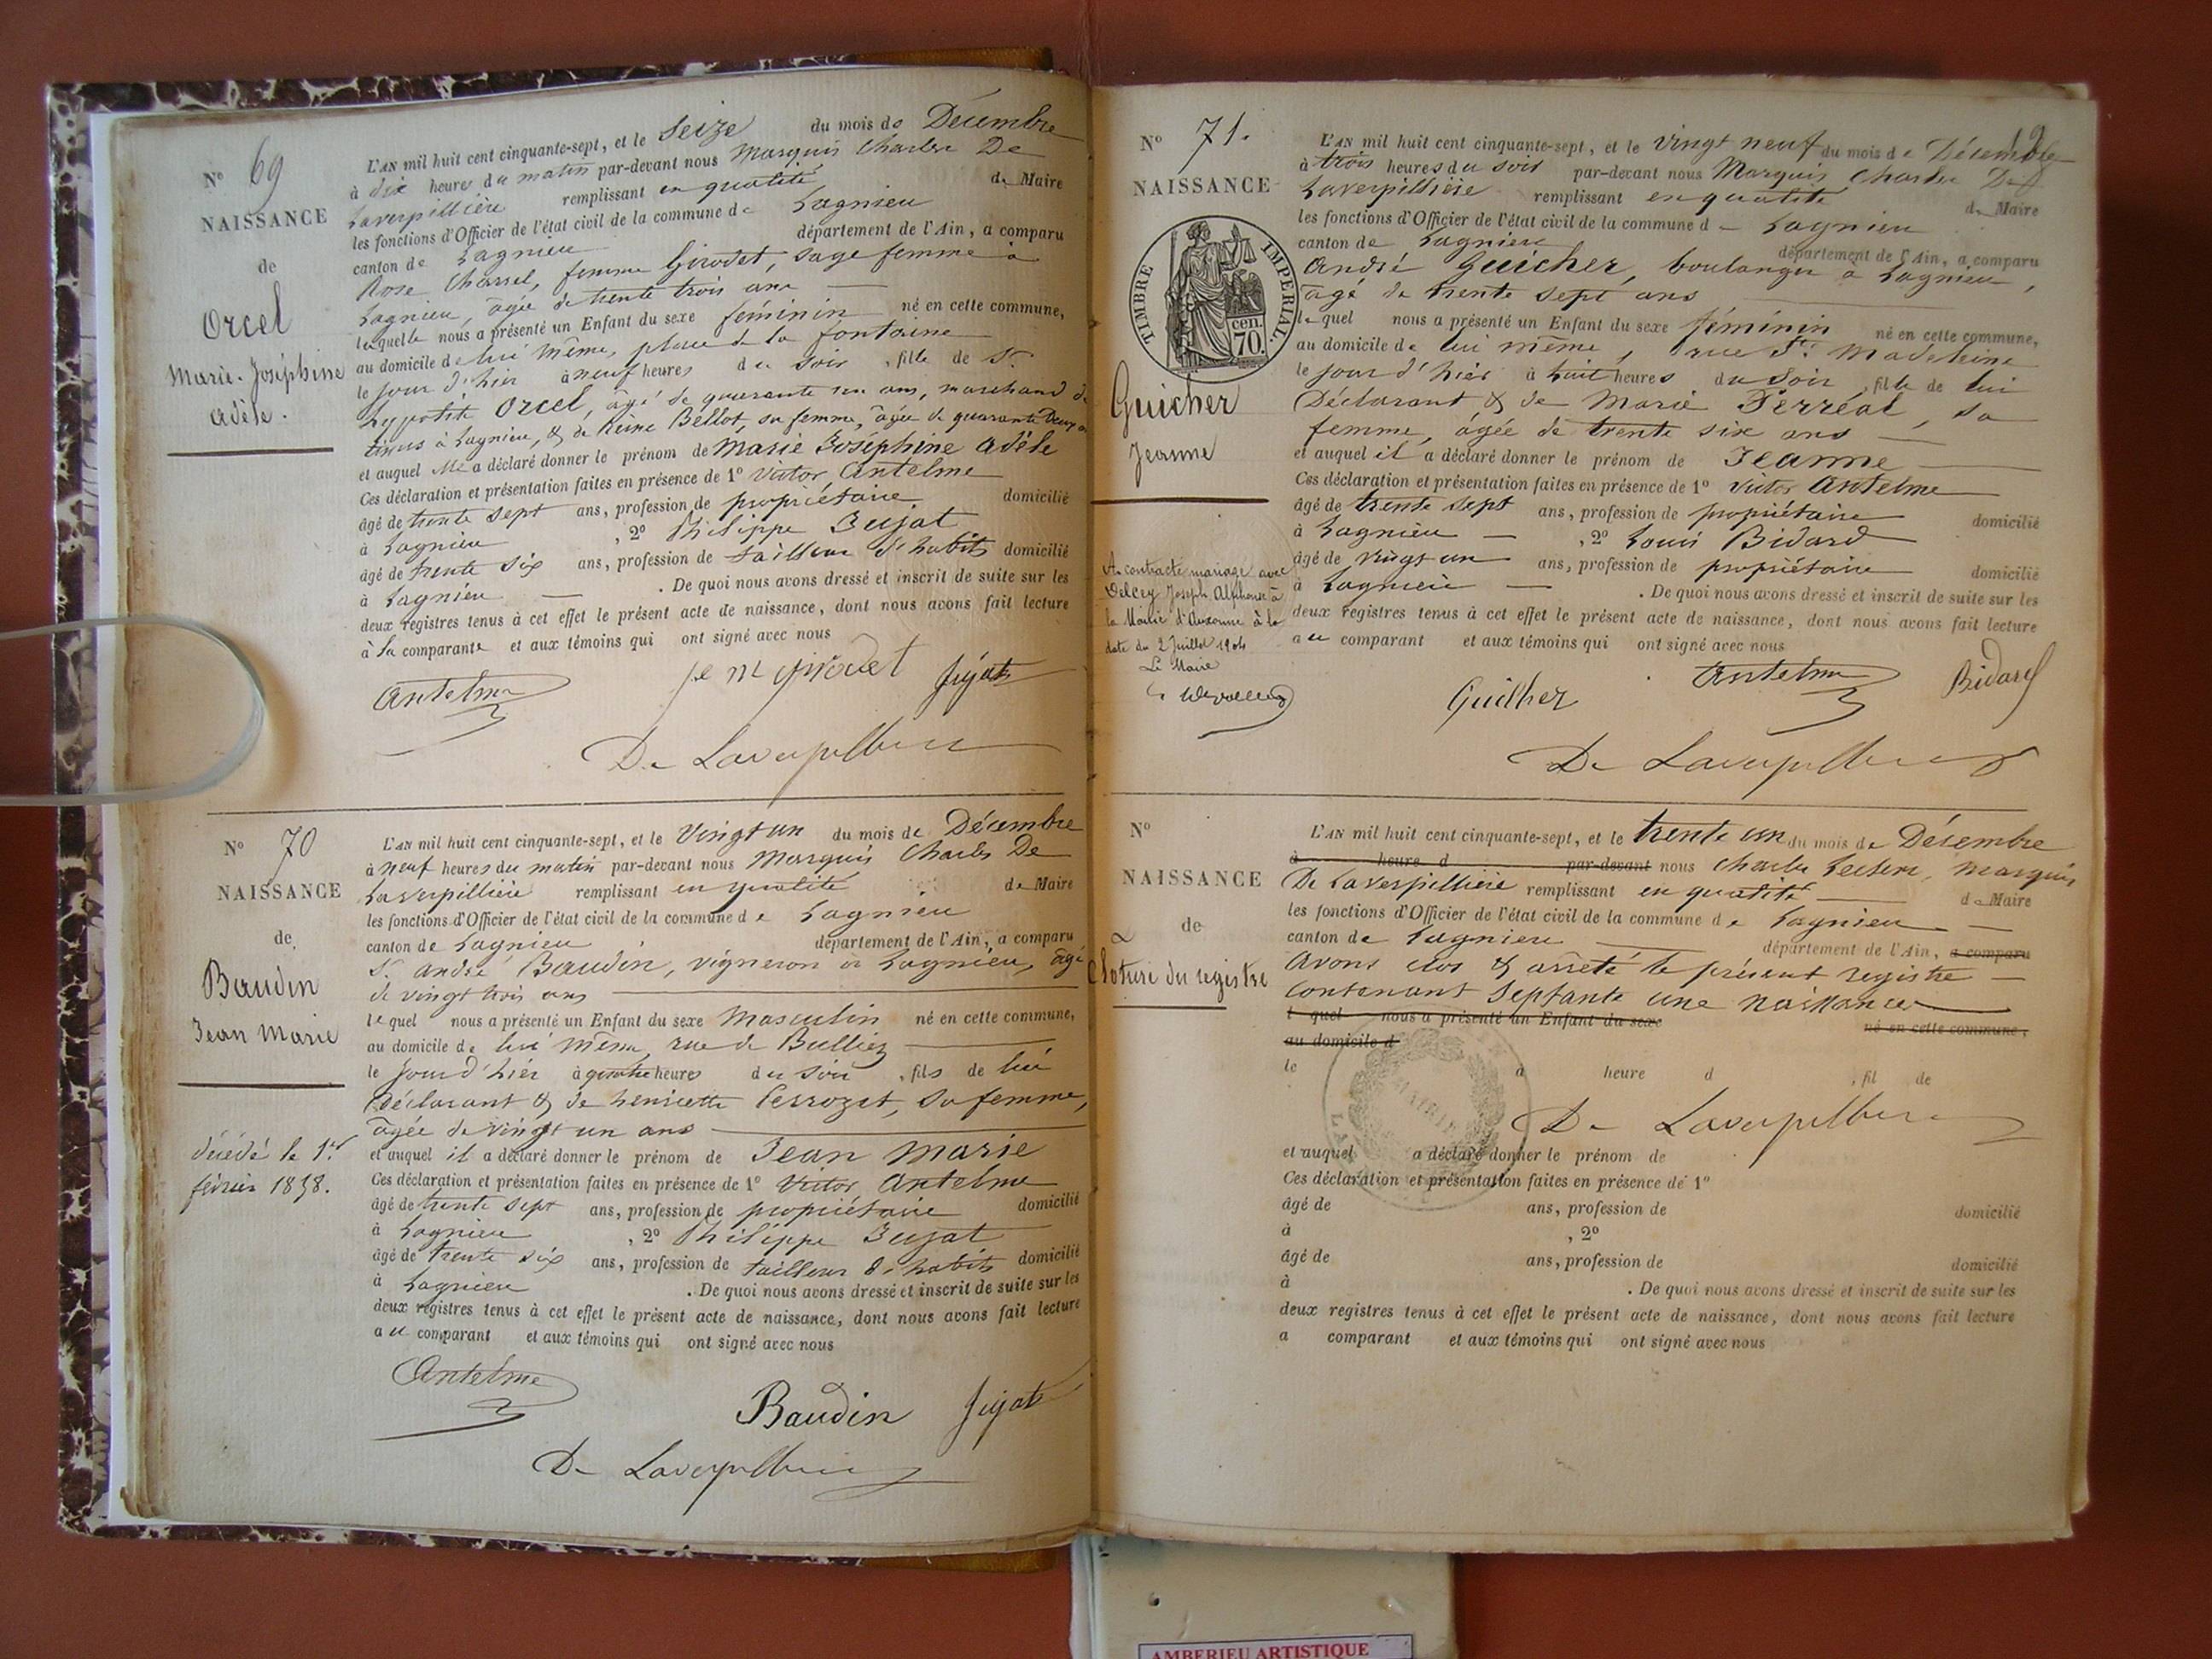 Nº 69
NAISSANCE
de
Orcel
Marie-Joséphine
Adèle.
L'AN mil huit cent cinquante-sept, et le Seize du mois de Décembre
à dix heures du matin par-devant nous Marquis Charles De
Laverpillière remplissant en qualité de Maire
les fonctions d'Officier de l'état civil de la commune de Lagnieu
canton de Lagnieu département de l'Ain, a comparu
Rose Charrel, femme Girodet, sage femme à
Lagnieu, âgée de trente trois ans
laquelle nous a présenté un Enfant du sexe féminin né en cette commune,
au domicile de lui même, place de la fontaine
le jour d'hier à neuf heures du soir, fille de Sr.
hypolite Orcel, âgé de quarante un ans, marchand de
tissus à Lagnieu, & de Reine Bellot, sa femme, âgée de quarante deux ans
et auquel elle a déclaré donner le prénom de Marie Joséphine Adèle
Ces déclaration et présentation faites en présence de 1º Victor Antelme
âgé de trente sept ans, profession de propriétaire domicilié
à Lagnieu, 2º Philippe Jujat
âgé de trente six ans, profession de tailleur d'habits domicilié
à Lagnieu. De quoi nous avons dressé et inscrit de suite sur les
deux registres tenus à cet effet le présent acte de naissance, dont nous avons fait lecture
à la comparante et aux témoins qui ont signé avec nous
Antelme girodet Jujat
De Laverpilliere
Nº 70
NAISSANCE
de
Baudin
Jean Marie
décédé le 1er
février 1858.
L'AN mil huit cent cinquante-sept, et le Vingt un du mois de Décembre
à neuf heures du matin par-devant nous Marquis Charles De
Laverpillière remplissant en qualité de Maire
les fonctions d'Officier de l'état civil de la commune de Lagnieu
canton de Lagnieu département de l'Ain, a comparu
Sr. André Baudin, vigneron à Lagnieu, âgé
de vingt trois ans
lequel nous a présenté un Enfant du sexe Masculin né en cette commune,
au domicile de lui même, rue de Bulliez
le jour d'hier à quatre heures du soir, fils de lui
Déclarant & de henriette Perrozet, sa femme,
âgée de vingt un ans
et auquel il a déclaré donner le prénom de Jean Marie
Ces déclaration et présentation faites en présence de 1º Victor Antelme
âgé de trente sept ans, profession de propriétaire domicilié
à Lagnieu, 2º Philippe Jujat
âgé de trente six ans, profession de tailleur d'habits domicilié
à Lagnieu. De quoi nous avons dressé et inscrit de suite sur les
deux registres tenus à cet effet le présent acte de naissance, dont nous avons fait lecture
au comparant et aux témoins qui ont signé avec nous
Antelme Baudin Jujat
De Laverpilliere
Nº 71.
NAISSANCE
TIMBRE IMPERIAL
70 cen.
Guicher
Jeanne
A contracté mariage avec
Delcey Joseph Alphonse à
la Mairie d'Auxonne à la
date du 2 Juillet 1904
Le Maire
L'AN mil huit cent cinquante-sept, et le Vingt neuf du mois de Décembre
à trois heures du soir par-devant nous Marquis Charles De
Laverpillière remplissant en qualité de Maire
les fonctions d'Officier de l'état civil de la commune de Lagnieu
canton de Lagnieu département de l'Ain, a comparu
André Guicher, boulanger à Lagnieu,
âgé de trente sept ans
lequel nous a présenté un Enfant du sexe féminin né en cette commune,
au domicile de lui même, rue Ste. Madeleine
le jour d'hier à huit heures du soir, fille de lui
Déclarant & de Marie Ferréal, sa
femme, âgée de trente six ans
et auquel il a déclaré donner le prénom de Jeanne
Ces déclaration et présentation faites en présence de 1º Victor Antelme
âgé de trente sept ans, profession de propriétaire domicilié
à Lagnieu, 2º Louis Bidard
âgé de vingt un ans, profession de propriétaire domicilié
à Lagnieu. De quoi nous avons dressé et inscrit de suite sur les
deux registres tenus à cet effet le présent acte de naissance, dont nous avons fait lecture
au comparant et aux témoins qui ont signé avec nous
Guicher Antelme Bidard
De Laverpilliere
Nº
NAISSANCE
de
Cloture du registre
L'AN mil huit cent cinquante-sept, et le trente un du mois de Décembre
à heure d par-devant nous Charles Leclerc, Marquis
De Laverpillière remplissant en qualité de Maire
les fonctions d'Officier de l'état civil de la commune de Lagnieu
canton de Lagnieu département de l'Ain, a comparu
Avons clos & arrêté le présent registre
Contenant Septante une naissances
l quel nous a présenté un Enfant du sexe né en cette commune,
au domicile d
le à heure d, fil de
MAIRIE
De Laverpilliere
et auquel a déclaré donner le prénom de
Ces déclaration et présentation faites en présence de 1º
âgé de ans, profession de domicilié
à, 2º
âgé de ans, profession de domicilié
à. De quoi nous avons dressé et inscrit de suite sur les
deux registres tenus à cet effet le présent acte de naissance, dont nous avons fait lecture
a comparant et aux témoins qui ont signé avec nous
AMBERIEU ARTISTIQUE